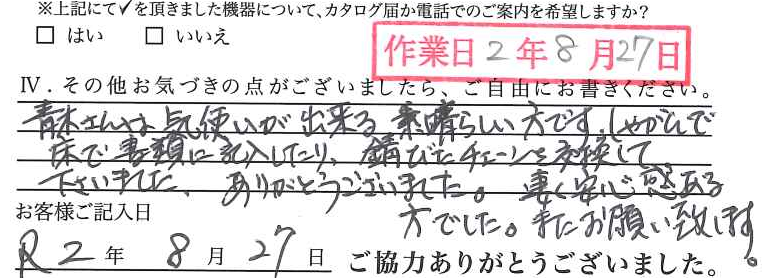 ※上記にて✓を頂きました機器について、カタログ届か電話でのご案内を希望しますか？
□ はい □ いいえ
作業日 2 年 8 月 27 日
Ⅳ．その他お気づきの点がございましたら、ご自由にお書きください。
青木さんは気使いが出来る素晴らしい方です。しゃがんで
床で書類に記入したり、錆びたチェーンを交換して
下さいました、ありがとうございました。凄く安心感ある
方でした。またお願い致します。
お客様ご記入日
R2 年 8 月 27 日 ご協力ありがとうございました。